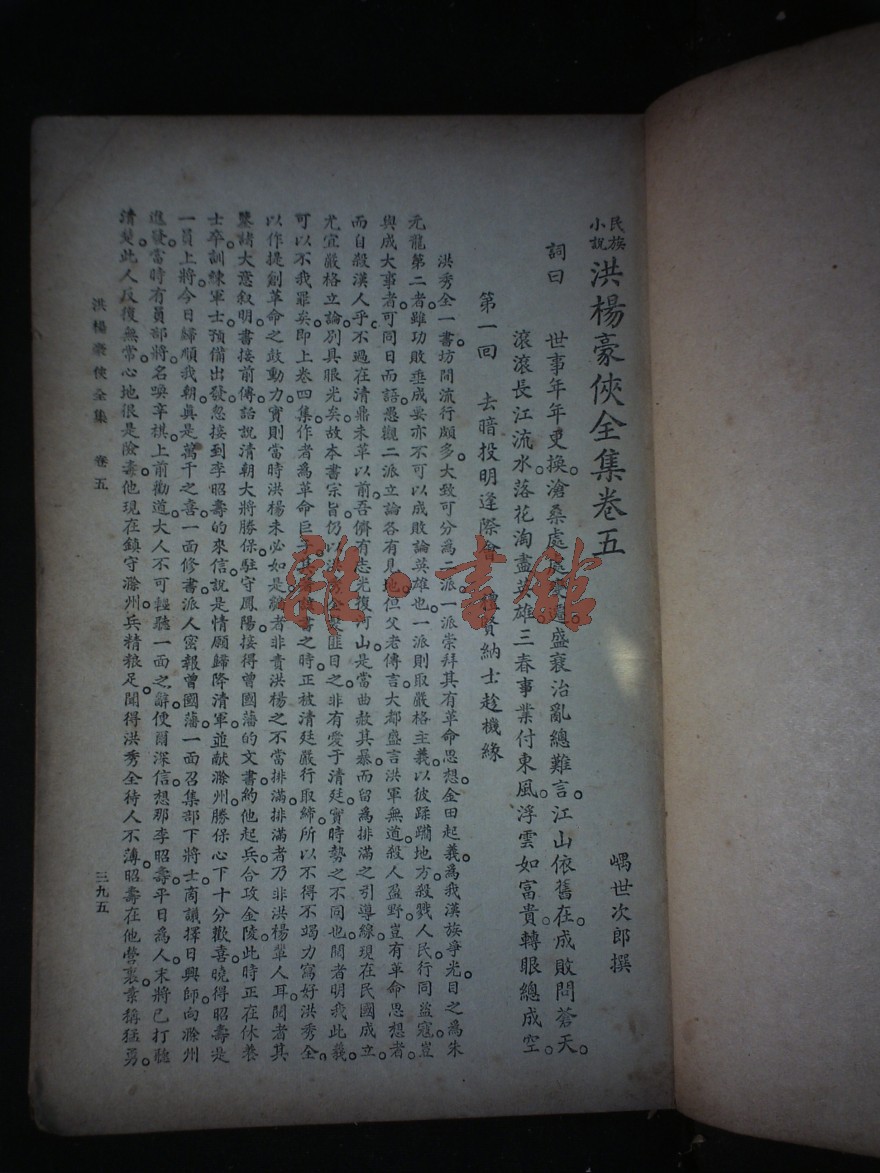 民族小說 洪楊豪俠全集卷五
嵎世次郎撰
詞曰 世事年年更換。滄桑處處變遷。盛衰治亂總難言。江山依舊在。成敗問蒼天。
滾滾長江流水。落花淘盡英雄。三春事業付東風。浮雲如富貴。轉眼總成空。
第一回 去暗投明逢際會 禮賢納士趁機緣
洪秀全一書坊間流行頗多。大致可分為二派。一派崇拜其有革命思想。金田起義。為我漢族爭光。目之為朱
元龍第二者。雖功敗垂成。要亦不可以成敗論英雄也。一派則取嚴格主義。以彼蹂躪地方。殺戮人民。行同盜寇。豈
與成大事者。可同日而語。愚觀二派立論。各有見地。但父老傳言。大都盛言洪軍無道。殺人盈野。豈有革命思想者。
而自殺漢人乎。不過在清鼎未革以前。吾儕有志光復河山。是當曲赦其暴。而留為排滿之引導線。現在民國成立。
尤宜嚴格立論。別具眼光矣。故本書宗旨。仍以洪 匪目之。非有愛于清廷。實時勢之不同也。閱者明我此義。
可以不我罪矣。即上卷四集。作者為革命巨子。其 書之時。正被清廷嚴行取締。所以不得不竭力寫好洪秀全。
以作提創革命之鼓動力。實則當時洪楊未必如是。 者非責洪楊之不當排滿。排滿者乃非洪楊輩人耳。閱者其
鑒諸大意叙明。書接前傳。話說清朝大將勝保。駐守鳳陽。接得曾國藩的文書。約他起兵合攻金陵。此時正在休養
士卒。訓練軍士。預備出發。忽接到李昭壽的來信。說是情願歸降清軍。並献滁州。勝保心下十分歡喜。曉得昭壽是
一員上將。今日歸順我朝。眞是萬千之喜。一面修書。派人密報曾國藩。一面召集部下將士。商議擇日興師。向滁州
進發。當時有員部將。名喚辛棋。上前勸道。大人不可輕聽一面之辭。便爾深信。想那李昭壽平日為人。末將已打聽
清楚。此人反復無常。心地很是險毒。他現在鎮守滁州。兵精粮足。聞得洪秀全待人不薄。昭壽在他營裏。業稱猛勇。
洪楊豪俠全集 卷五
三九五
雜·書館